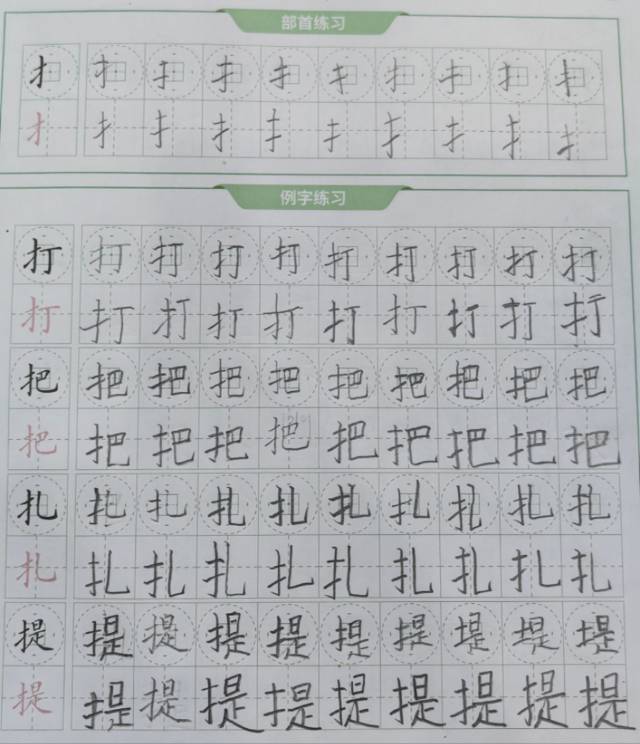 部首练习
扌 扌 扌 扌 扌 扌 扌 扌 扌 扌
扌 扌 扌 扌 扌 扌 扌 扌 扌 扌
例字练习
打 打 打 打 打 打 打 打 打 打
打 打 打 打 打 打 打 打 打 打
把 把 把 把 把 把 把 把 把 把
把 把 把 把 把 把 把 把 把 把
扎 扎 扎 扎 扎 扎 扎 扎 扎 扎
扎 扎 扎 扎 扎 扎 扎 扎 扎 扎
提 提 提 提 提 提 提 提 提 提
提 提 提 提 提 提 提 提 提 提